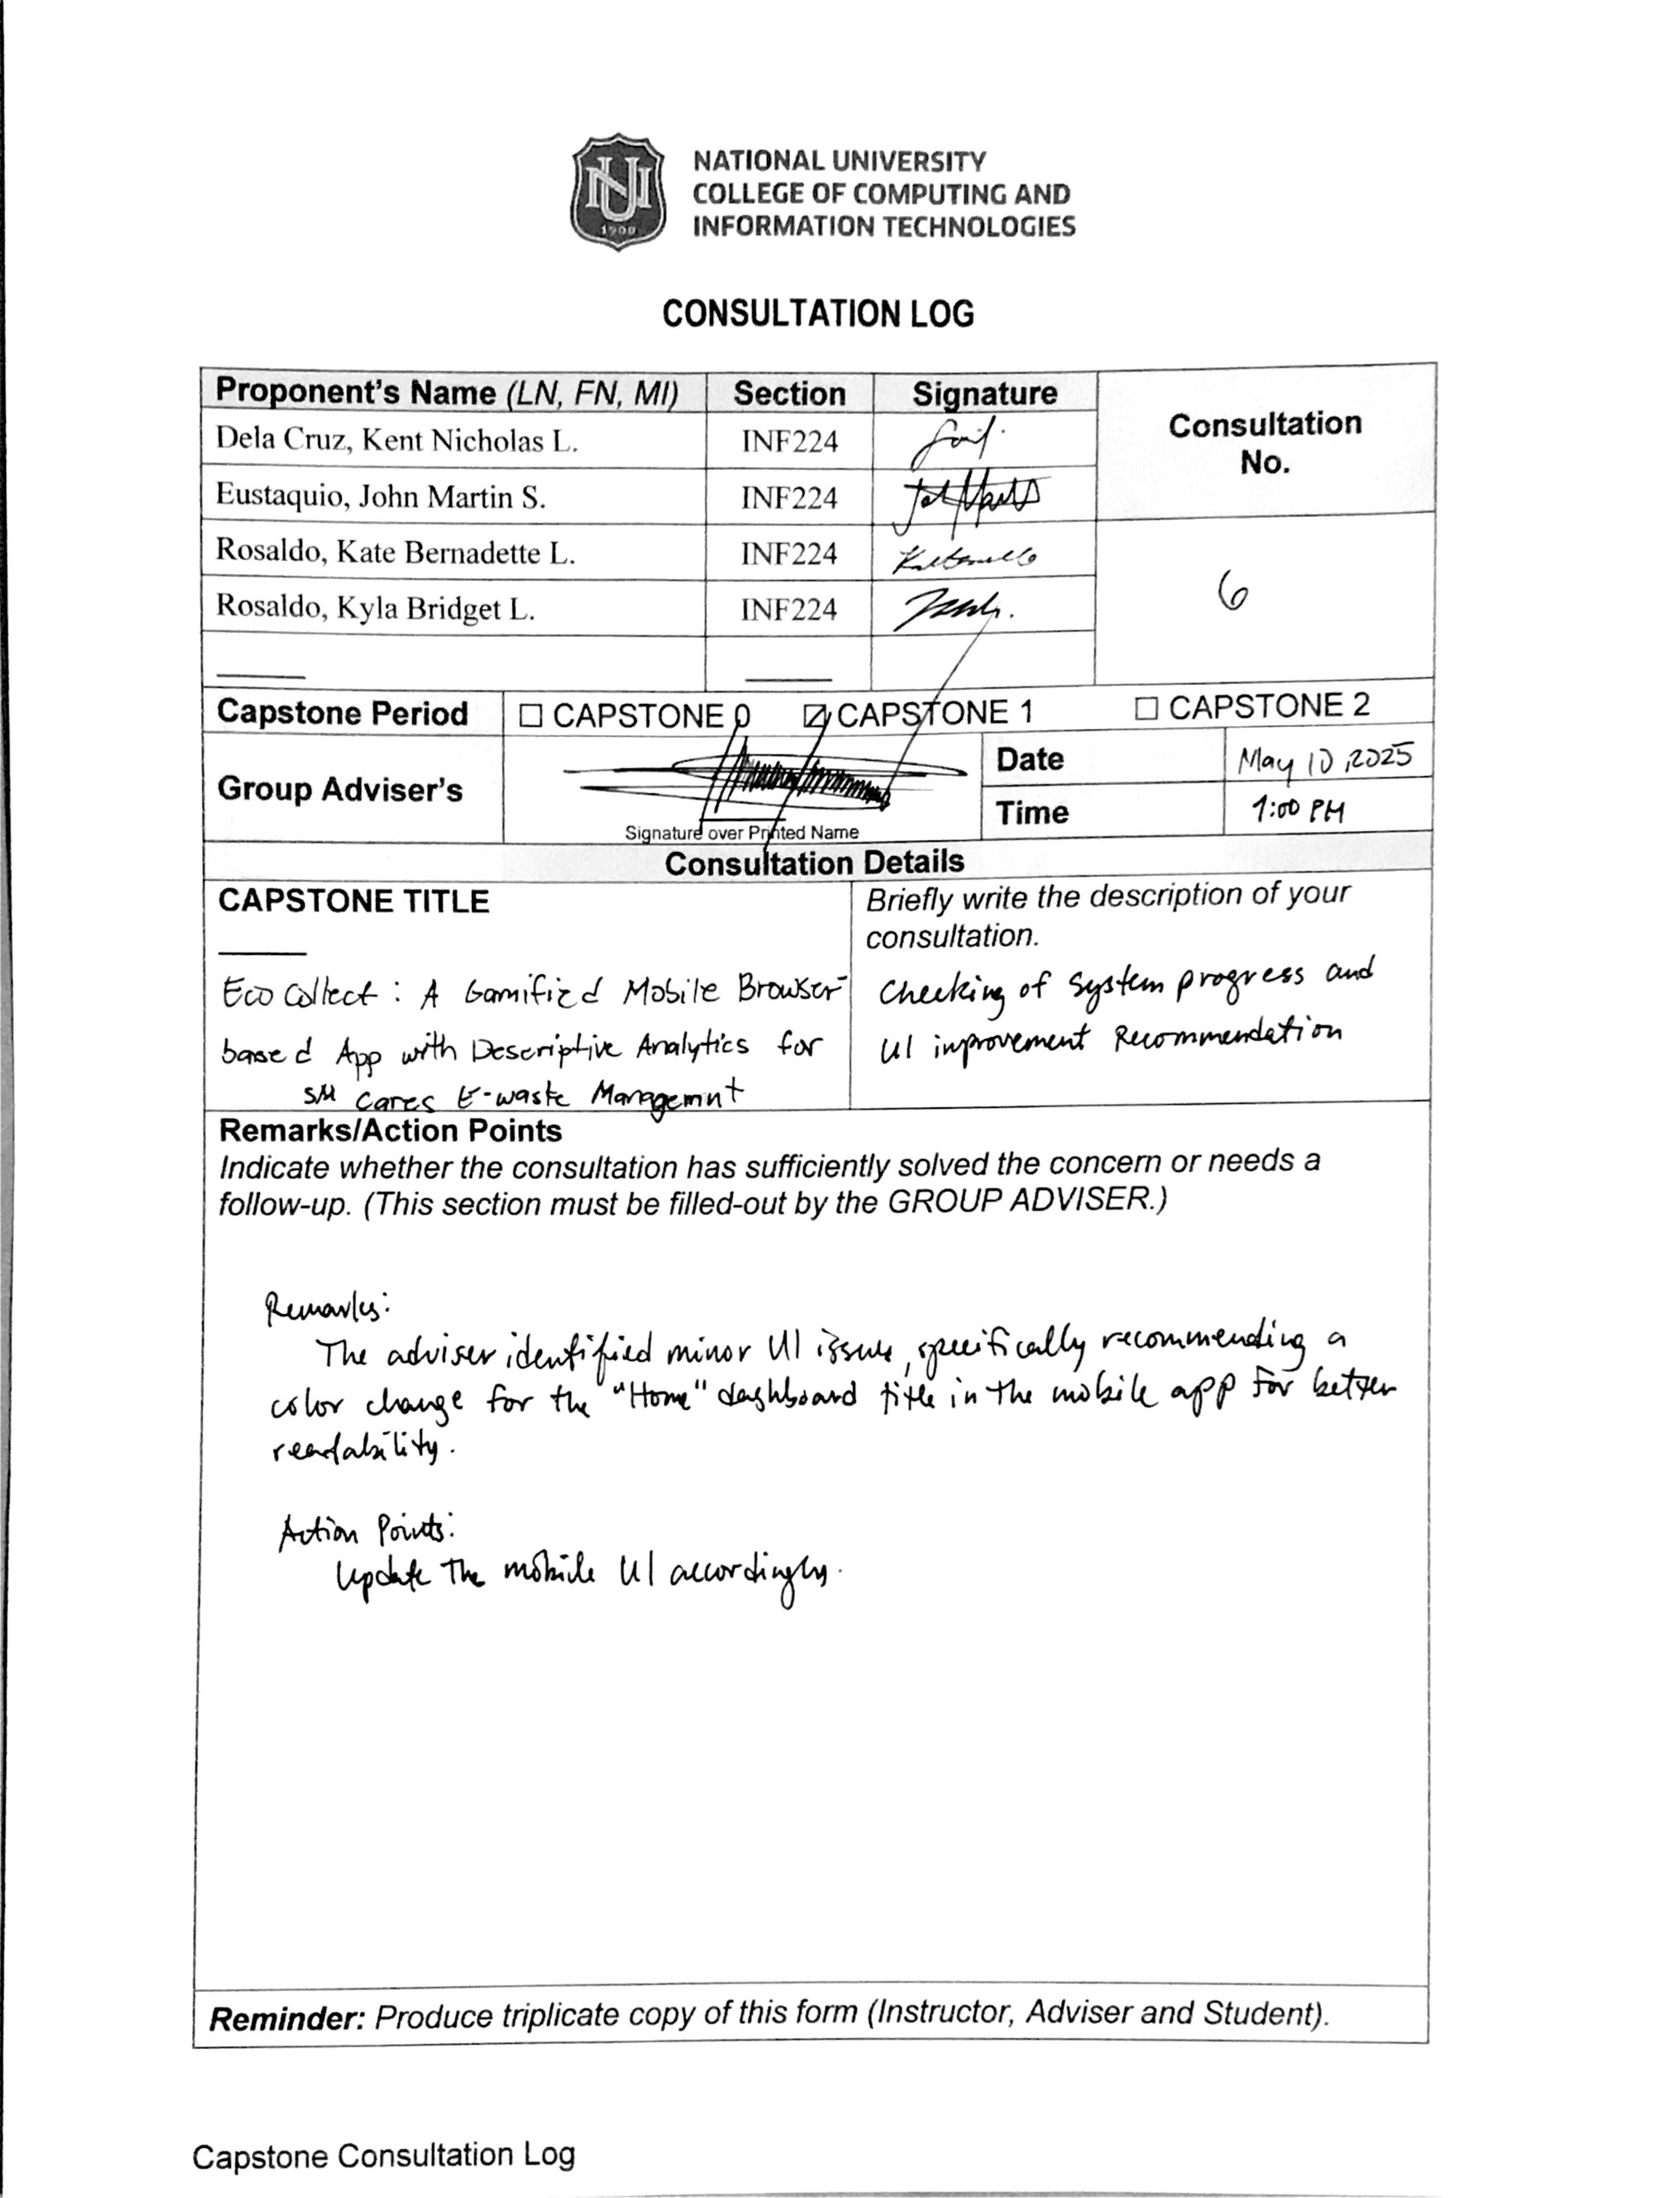 NATIONAL UNIVERSITY
COLLEGE OF COMPUTING AND
INFORMATION TECHNOLOGIES
1900
CONSULTATION LOG
Proponent's Name (LN, FN, MI) Section Signature Consultation No.
Dela Cruz, Kent Nicholas L. INF224
Eustaquio, John Martin S. INF224
Rosaldo, Kate Bernadette L. INF224
Rosaldo, Kyla Bridget L. INF224
6
Capstone Period ☐ CAPSTONE 0 ☑ CAPSTONE 1 ☐ CAPSTONE 2
Group Adviser's
Signature over Printed Name
Date May 10, 2025
Time 1:00 PM
Consultation Details
CAPSTONE TITLE
Eco Collect : A Gamified Mobile Browser-
based App with Descriptive Analytics for
SM Cares E-waste Managemnt
Briefly write the description of your
consultation.
Checking of system progress and
UI improvement Recommendation
Remarks/Action Points
Indicate whether the consultation has sufficiently solved the concern or needs a
follow-up. (This section must be filled-out by the GROUP ADVISER.)
Remarks:
The adviser identified minor UI issues, specifically recommending a
color change for the "Home" dashboard title in the mobile app for better
readability.
Action Points:
Update the mobile UI accordingly.
Reminder: Produce triplicate copy of this form (Instructor, Adviser and Student).
Capstone Consultation Log